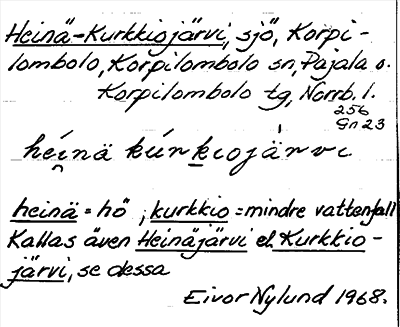 Heinä-Kurkkiojärvi, sjö, Korpi-
lombolo, Korpilombolo sn, Pajala o.
Korpilombolo tg, Norrb. l.
256
Gn 23
héi̯nä kúrkiojàrvi
heinä = hö ; kurkkio = mindre vattenfall
Kallas även Heinäjärvi el. Kurkkio-
järvi, se dessa
Eivor Nylund 1968.